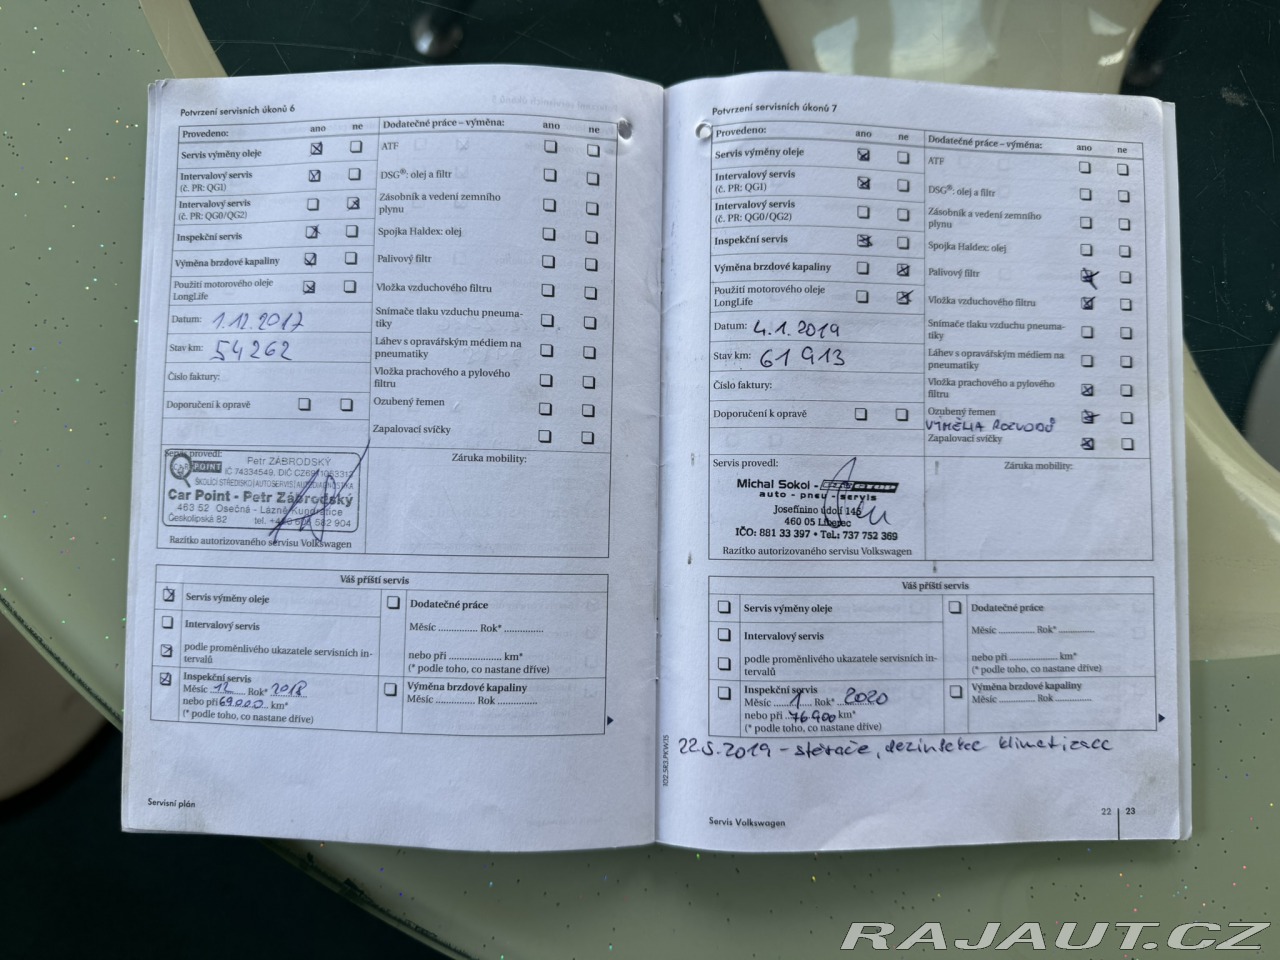 Potvrzení servisních úkonů 6
Provedeno: ano ne
Servis výměny oleje
Intervalový servis
(č. PR: QG1)
Intervalový servis
(č. PR: QG0/QG2)
Inspekční servis
Výměna brzdové kapaliny
Použití motorového oleje
LongLife
Datum: 1.12.2017
Stav km: 54262
Číslo faktury:
Doporučení k opravě
Dodatečné práce – výměna: ano ne
ATF
DSG®: olej a filtr
Zásobník a vedení zemního
plynu
Spojka Haldex: olej
Palivový filtr
Vložka vzduchového filtru
Snímače tlaku vzduchu pneuma-
tiky
Láhev s opravářským médiem na
pneumatiky
Vložka prachového a pylového
filtru
Ozubený řemen
Zapalovací svíčky
Servis provedl:
CAR POINT
Petr ZÁBRODSKÝ
IČ 74334549, DIČ
ŠKOLÍCÍ STŘEDISKO|AUTOSERVIS|AUTODIAGNOSTIKA
Car Point - Petr Zábrodský
463 52 Osečná - Lázně Kundratice
Českolipská 82 tel.
Razítko autorizovaného servisu Volkswagen
Záruka mobility:
Váš příští servis
Servis výměny oleje
Intervalový servis
podle proměnlivého ukazatele servisních in-
tervalů
Inspekční servis
Měsíc 12 Rok* 2018
nebo při 69.000 km*
(* podle toho, co nastane dříve)
Dodatečné práce
Měsíc .............. Rok* ..............
nebo při ................... km*
(* podle toho, co nastane dříve)
Výměna brzdové kapaliny
Měsíc .............. Rok ..............
Servisní plán
Potvrzení servisních úkonů 7
Provedeno: ano ne
Servis výměny oleje
Intervalový servis
(č. PR: QG1)
Intervalový servis
(č. PR: QG0/QG2)
Inspekční servis
Výměna brzdové kapaliny
Použití motorového oleje
LongLife
Datum: 4.1.2019
Stav km: 61 913
Číslo faktury:
Doporučení k opravě
Dodatečné práce – výměna: ano ne
ATF
DSG®: olej a filtr
Zásobník a vedení zemního
plynu
Spojka Haldex: olej
Palivový filtr
Vložka vzduchového filtru
Snímače tlaku vzduchu pneuma-
tiky
Láhev s opravářským médiem na
pneumatiky
Vložka prachového a pylového
filtru
Ozubený řemen
VÝMĚNA ROZVODŮ
Zapalovací svíčky
Servis provedl:
Michal Sokol -
auto - pneu - servis
Josefinino údolí 145
460 05 Liberec
IČO: 881 33 397 • TeL: 737 752 369
Razítko autorizovaného servisu Volkswagen
Záruka mobility:
Váš příští servis
Servis výměny oleje
Intervalový servis
podle proměnlivého ukazatele servisních in-
tervalů
Inspekční servis
Měsíc 1 Rok* 2020
nebo při 76 900 km*
(* podle toho, co nastane dříve)
Dodatečné práce
Měsíc .............. Rok* ..............
nebo při ................... km*
(* podle toho, co nastane dříve)
Výměna brzdové kapaliny
Měsíc .............. Rok ..............
22.5.2019 - stěrače, dezinfekce klimatizace
Servis Volkswagen
22 23
RAJAUT.CZ